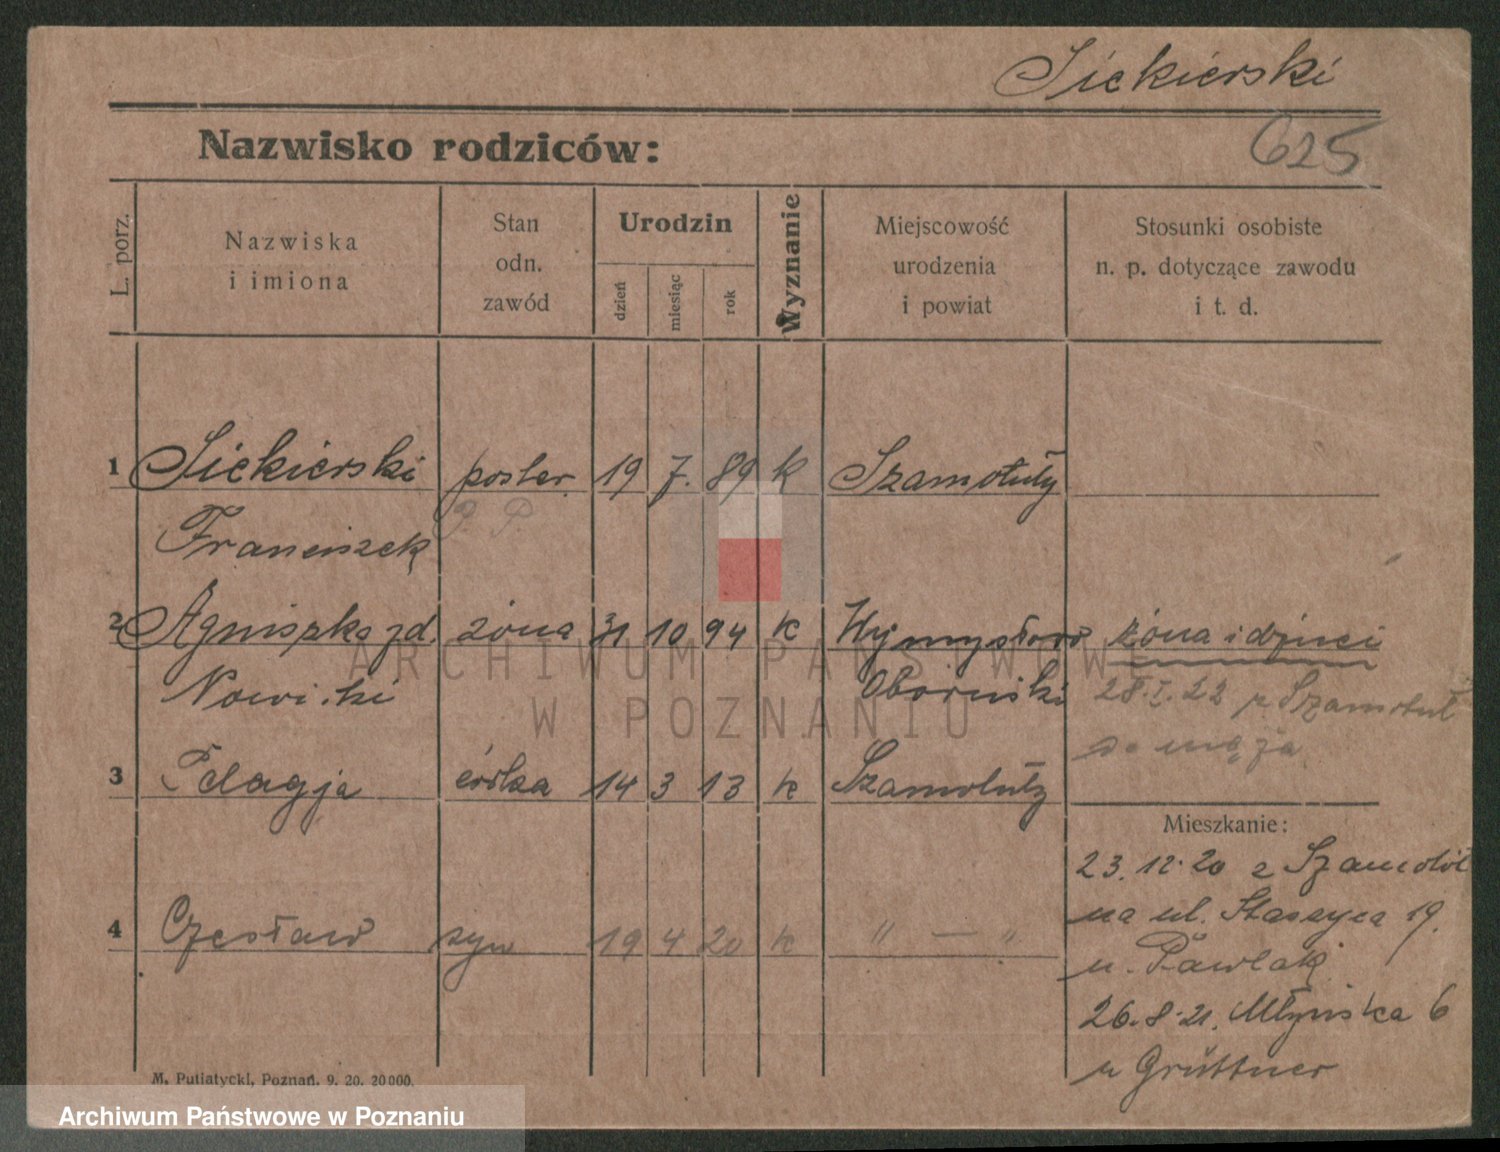 Siekierski
625
Nazwisko rodziców:
L. porz.
Nazwiska
i imiona
Stan
odn.
zawód
Urodzin
dzień
miesiąc
rok
Wyznanie
Miejscowość
urodzenia
i powiat
Stosunki osobiste
n. p. dotyczące zawodu
i t. d.
1 Siekierski poster. 19 7. 89 k Szamotuły
Franciszek P. P.
2 Agniszka zd. żona 31 10 94 k Wymysłowo żona i dzieci
Nowicki Obornicki 28.I.22 z Szamotuł
do męża
3 Pelagja córka 14 3 13 k Szamotuły
Mieszkanie:
23.12.20 z Szamotuł
na ul. Staszyca 19.
4 Czesław syn 19 4 20 k " — "
u. Pawlak
26.8.21. Młyńska 6
u Grüttner
M. Putiatycki, Poznań. 9. 20. 20000.
ARCHIWUM PAŃSTWOWE
W POZNANIU
Archiwum Państwowe w Poznaniu